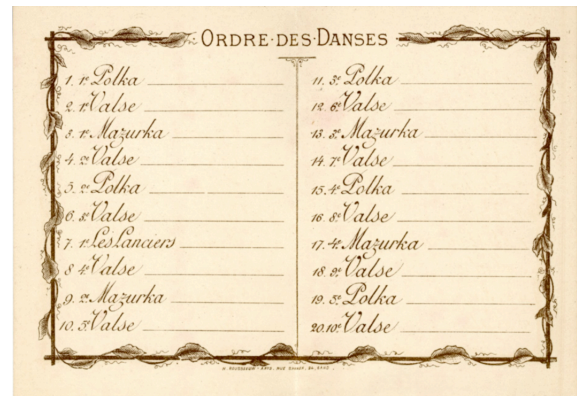 ORDRE·DES·DANSES
1. 1e Polka
2. 1e Valse
3. 1e Mazurka
4. 2e Valse
5. 2e Polka
6. 3e Valse
7. 1e Les Lanciers
8 4e Valse
9. 2e Mazurka
10. 5e Valse
11. 3e Polka
12. 6e Valse
13. 3e Mazurka
14. 7e Valse
15. 4e Polka
16. 8e Valse
17. 4e Mazurka
18. 9e Valse
19. 5e Polka
20. 10e Valse